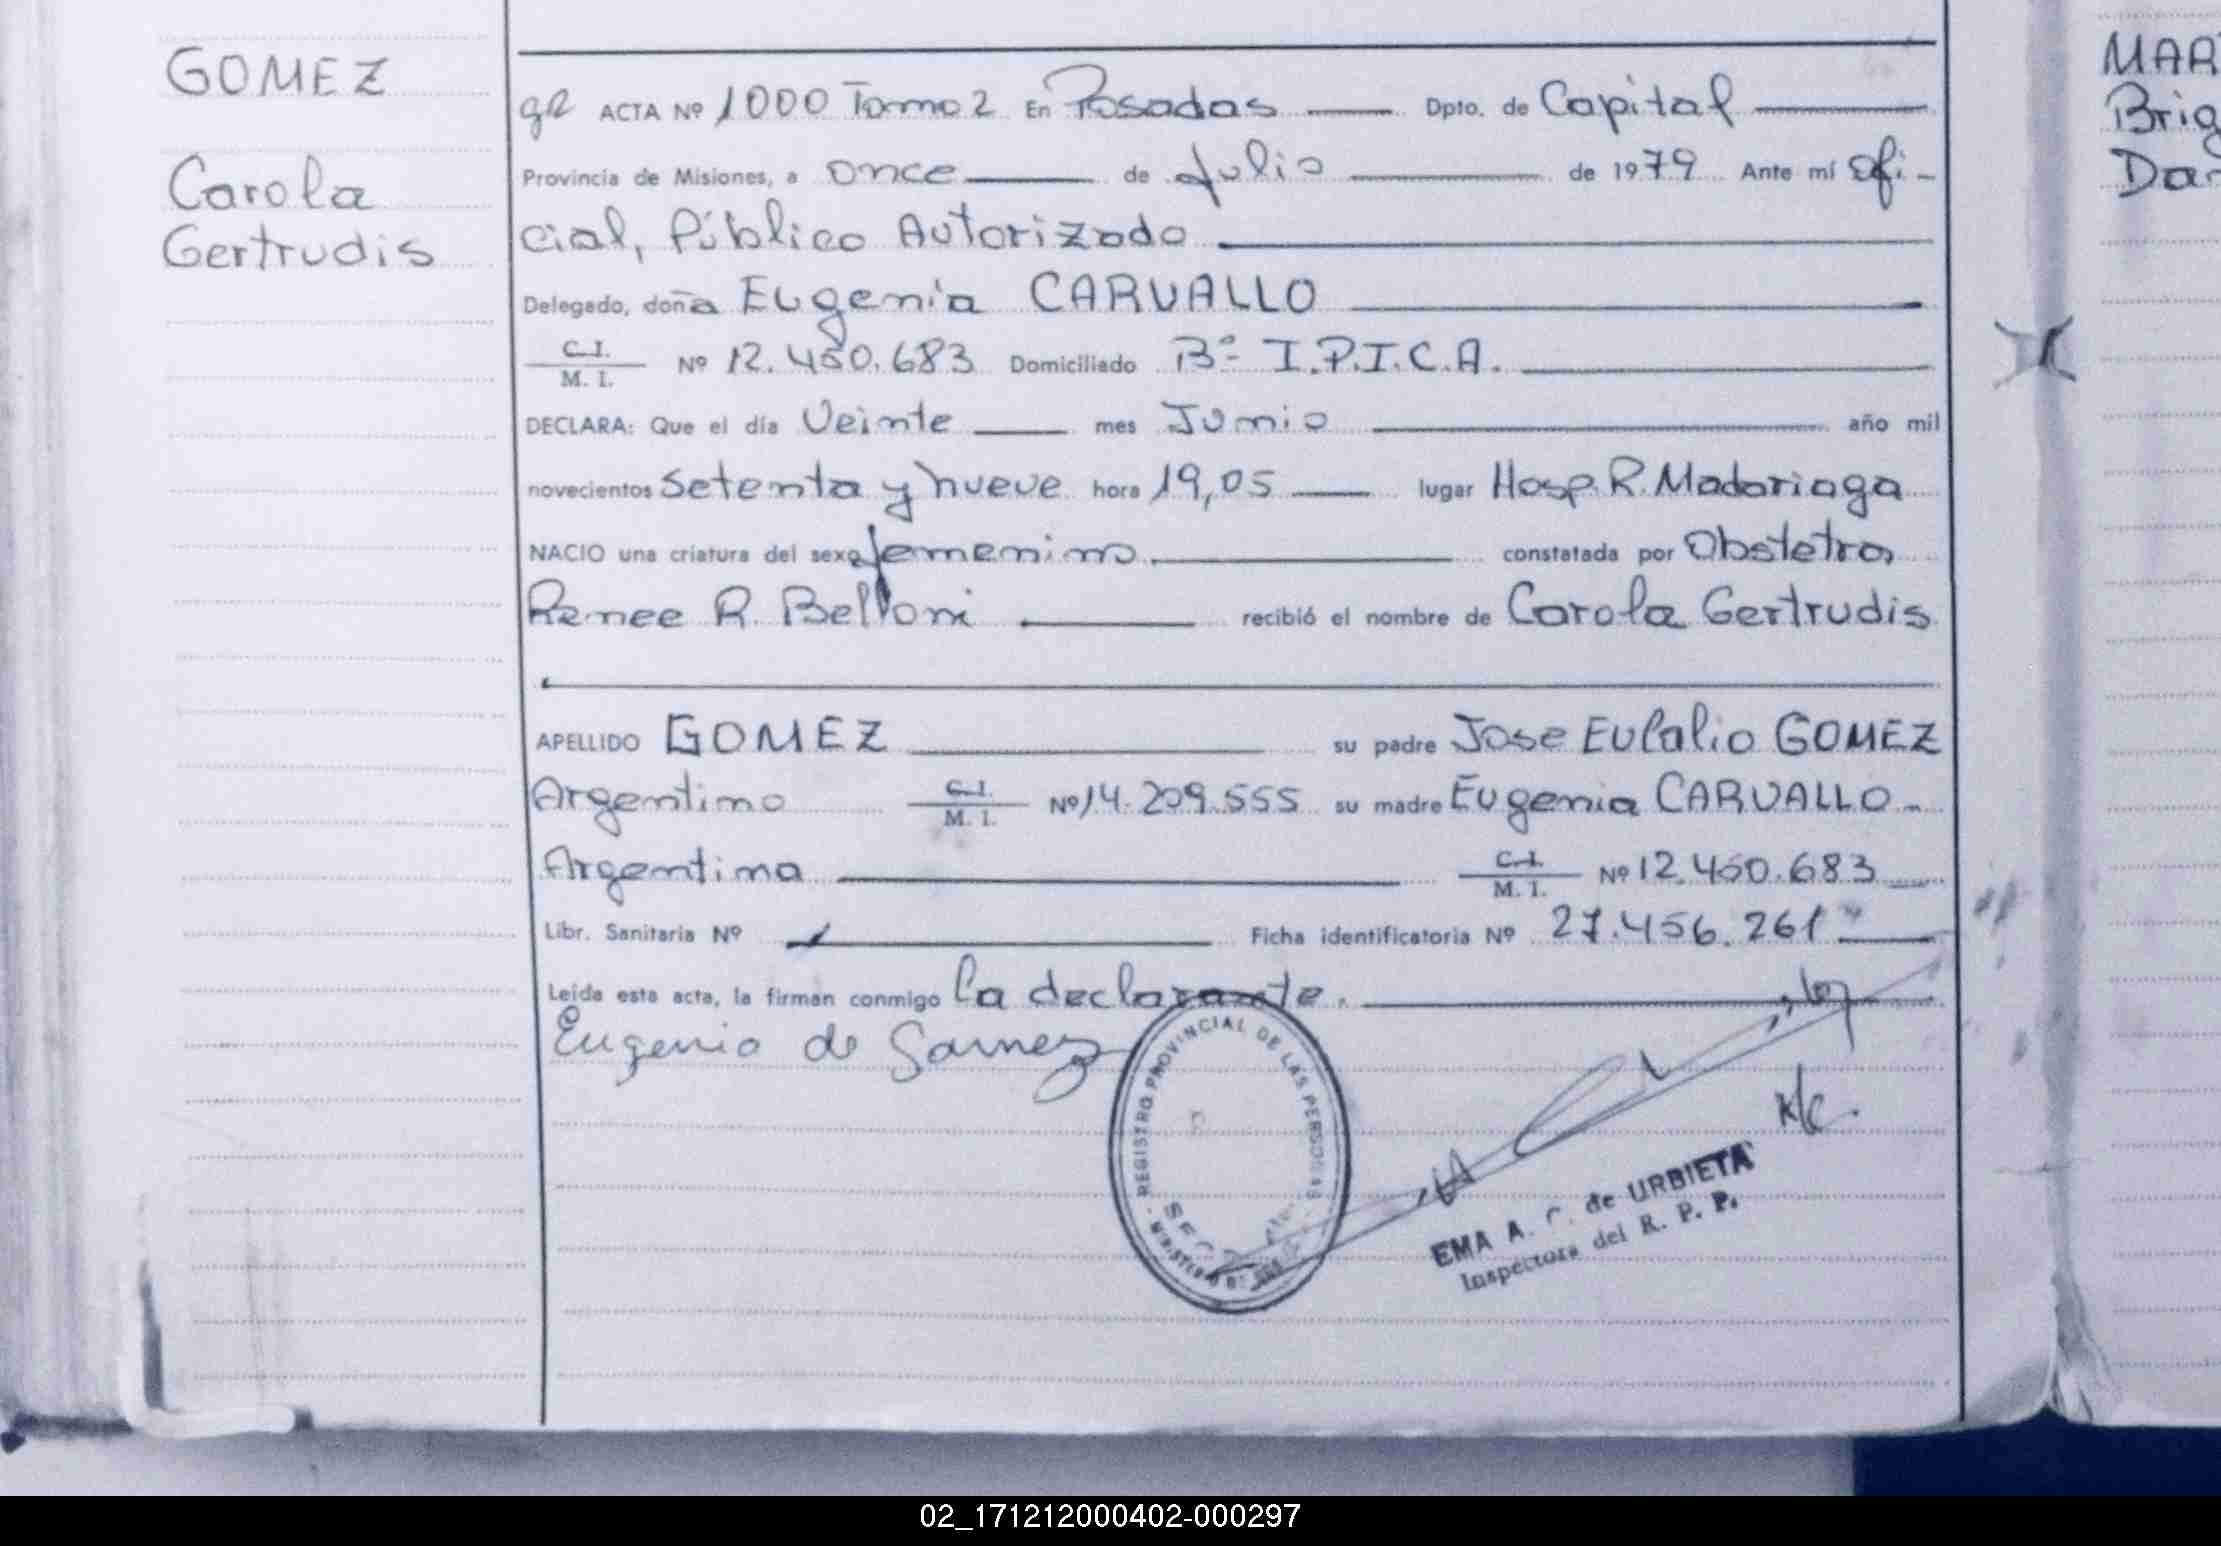 GOMEZ
Carola
Gertrudis
ACTA Nº 1000 Tomo 2 En Posadas Dpto. de Capital
Provincia de Misiones, a once de Julio de 1979 Ante mí Ofi-
cial, Público Autorizado
Delegado, doña Eugenia CARVALLO
C.I.
M. I. Nº 12.450.683 Domiciliado Bº I.P.I.C.A.
DECLARA: Que el día Veinte mes Junio año mil
novecientos setenta y nueve hora 19,05 lugar Hosp. R. Madariaga
NACIO una criatura del sexo femenino constatada por Obstetra,
Renee R. Belloni recibió el nombre de Carola Gertrudis
APELLIDO GOMEZ su padre Jose Eulalio GOMEZ
Argentino C.I. M. I. Nº 14.209.555 su madre Eugenia CARVALLO
Argentina C.I. M. I. Nº 12.450.683
Libr. Sanitaria Nº Ficha identificatoria Nº 27.456.261
Leída esta acta, la firman conmigo la declarante.
Eugenia de Gomez
REGISTRO PROVINCIAL DE LAS PERSONAS
EMA A. C. de URBIETA
Inspectora del R. P. P.
MAR
Brig
Da
02_171212000402-000297